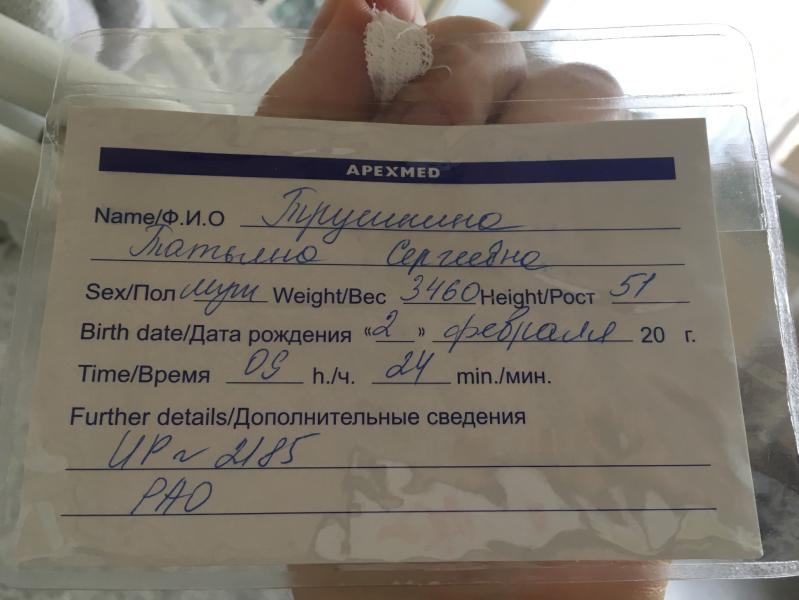 APEXMED
Name/Ф.И.О Трушкина
Татьяна Сергеевна
Sex/Пол муж Weight/Вес 3460 Height/Рост 51
Birth date/Дата рождения «2» февраля 20 г.
Time/Время 09 h./ч. 24 min./мин.
Further details/Дополнительные сведения
ИР № 2185
РАО